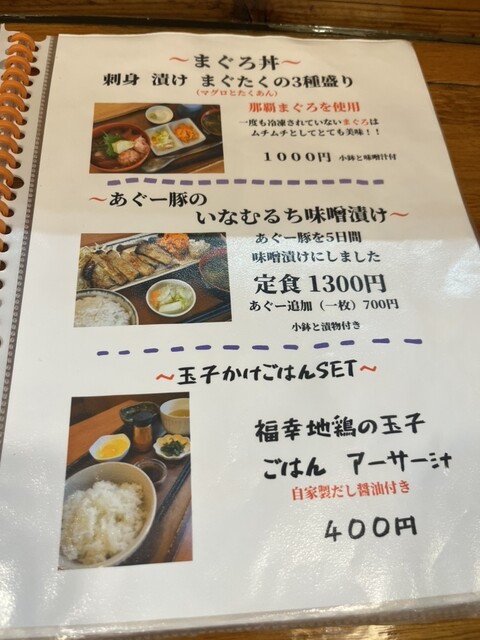 ～まぐろ丼～
刺身 漬け まぐたくの3種盛り
(マグロとたくあん)
那覇まぐろを使用
一度も冷凍されていないまぐろは
ムチムチとしてとても美味！！
1000円 小鉢と味噌汁付
～あぐー豚の
いなむるち味噌漬け～
あぐー豚を5日間
味噌漬けにしました
定食 1300円
あぐー追加（一枚）700円
小鉢と漬物付き
～玉子かけごはんSET～
福幸地鶏の玉子
ごはん アーサー汁
自家製だし醤油付き
400円